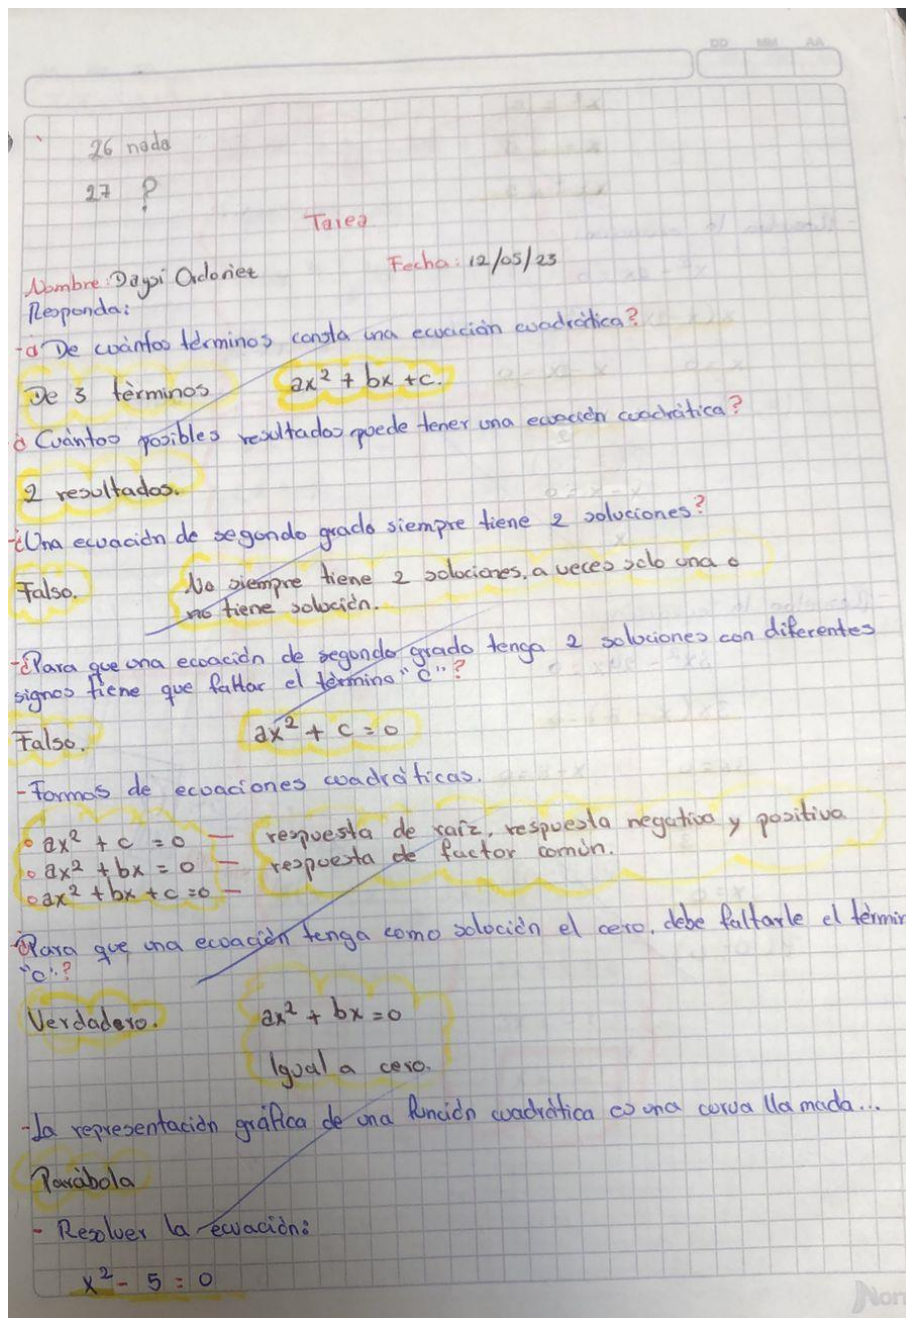 DD MM AA
26 nada
27 ?
Tarea
Nombre: Daysi Ordoñez Fecha: 12/05/23
Responda:
-¿De cuántos términos consta una ecuación cuadrática?
De 3 términos ax² + bx + c.
¿Cuántos posibles resultados puede tener una ecuación cuadrática?
2 resultados.
-¿Una ecuación de segundo grado siempre tiene 2 soluciones?
Falso. No siempre tiene 2 soluciones, a veces solo una o
no tiene solución.
-¿Para que una ecuación de segundo grado tenga 2 soluciones con diferentes
signos tiene que faltar el término "c"?
Falso. ax² + c = 0
-Formas de ecuaciones cuadráticas.
• ax² + c = 0 — respuesta de raíz, respuesta negativa y positiva
• ax² + bx = 0 — respuesta de factor común.
• ax² + bx + c = 0 —
¿Para que una ecuación tenga como solución el cero, debe faltarle el términ
"c"?
Verdadero. ax² + bx = 0
Igual a cero.
-La representación gráfica de una función cuadrática es una curva llamada...
Parábola
- Resolver la ecuación:
x² - 5 = 0
Nor